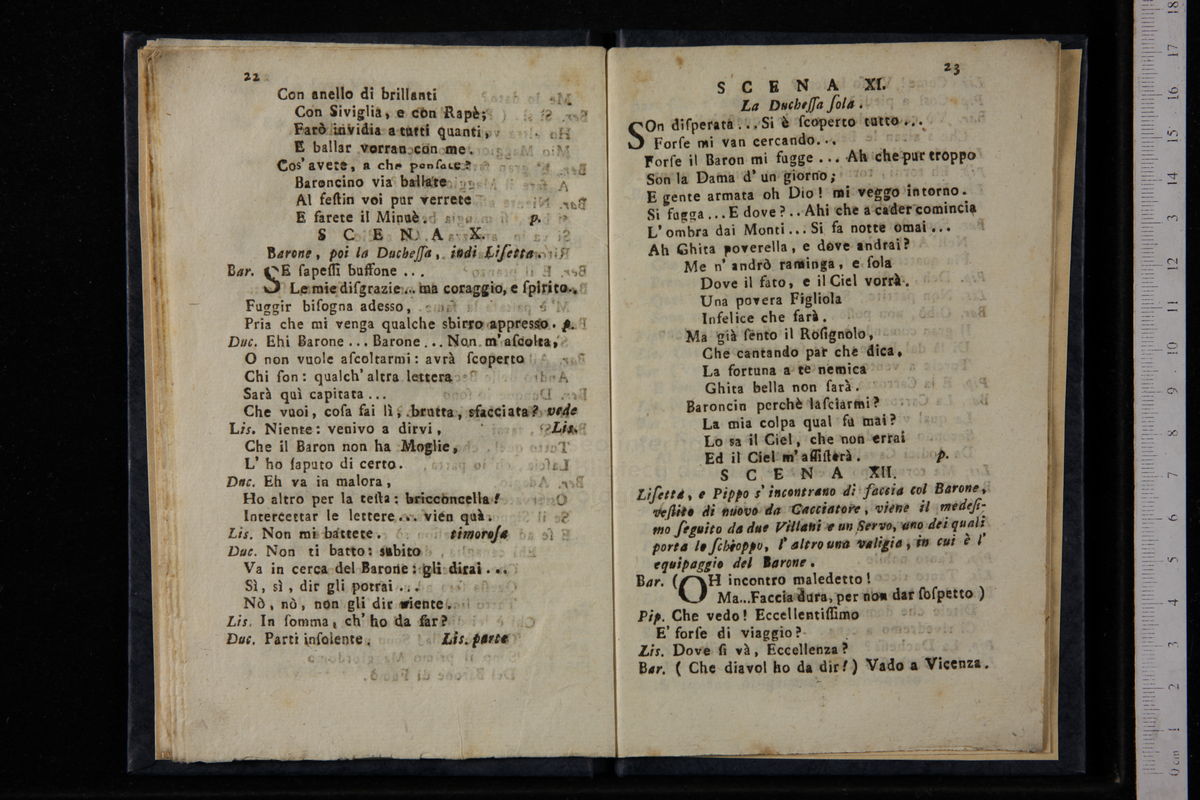 22
Con anello di brillanti
Con Siviglia, e con Rapè;
Farò invidia a tutti quanti,
E ballar vorran con me.
Cos' avete, a che pensate?
Baroncino via ballate
Al feſtin voi pur verrete
E farete il Minuè. p.
SCENA X.
Barone, poi la Ducheſſa, indi Liſetta.
Bar. SE ſapeſſi buffone ...
Le mie diſgrazie... ma coraggio, e ſpirito..
Fuggir biſogna adesso,
Pria che mi venga qualche sbirro appresso. p.
Duc. Ehi Barone ... Barone ... Non m' aſcolta,
O non vuole aſcoltarmi: avrà ſcoperto
Chi ſon: qualch' altra lettera
Sarà quì capitata ...
Che vuoi, coſa fai lì, brutta, sfacciata? vede
Lis. Niente: venivo a dirvi, Lis.
Che il Baron non ha Moglie,
L' ho ſaputo di certo.
Duc. Eh va in malora,
Ho altro per la teſta: bricconcella!
Intercettar le lettere... vien quà.
Lis. Non mi battete. timoroſa
Duc. Non ti batto: subito
Va in cerca del Barone: gli dirai ...
Sì, sì, dir gli potrai ...
Nò, nò, non gli dir niente.
Lis. In ſomma, ch' ho da far?
Duc. Parti inſolente. Lis. parte
23
SCENA XI.
La Ducheſſa ſola.
SOn diſperata ... Si è ſcoperto tutto ...
Forſe mi van cercando...
Forſe il Baron mi fugge ... Ah che pur troppo
Son la Dama d' un giorno;
E gente armata oh Dio! mi veggo intorno.
Si fugga ... E dove? .. Ahi che a cader comincia
L' ombra dai Monti ... Si fa notte omai ...
Ah Ghita poverella, e dove andrai?
Me n' andrò raminga, e ſola
Dove il fato, e il Ciel vorrà.
Una povera Figliola
Infelice che farà.
Ma già ſento il Roſignolo,
Che cantando par che dica,
La fortuna a te nemica
Ghita bella non ſarà.
Baroncin perchè laſciarmi?
La mia colpa qual fu mai?
Lo sa il Ciel, che non errai
Ed il Ciel m' aſſiſterà. p.
SCENA XII.
Liſetta, e Pippo s' incontrano di faccia col Barone,
veſtito di nuovo da Cacciatore, viene il medeſi-
mo ſeguito da due Villani e un Servo, uno dei quali
porta lo ſchioppo, l' altro una valigia, in cui è l'
equipaggio del Barone.
Bar. (OH incontro maledetto!
Ma... Faccia dura, per non dar ſoſpetto)
Pip. Che vedo! Eccellentiſſimo
E' forſe di viaggio?
Lis. Dove ſi và, Eccellenza?
Bar. (Che diavol ho da dir!) Vado a Vicenza.